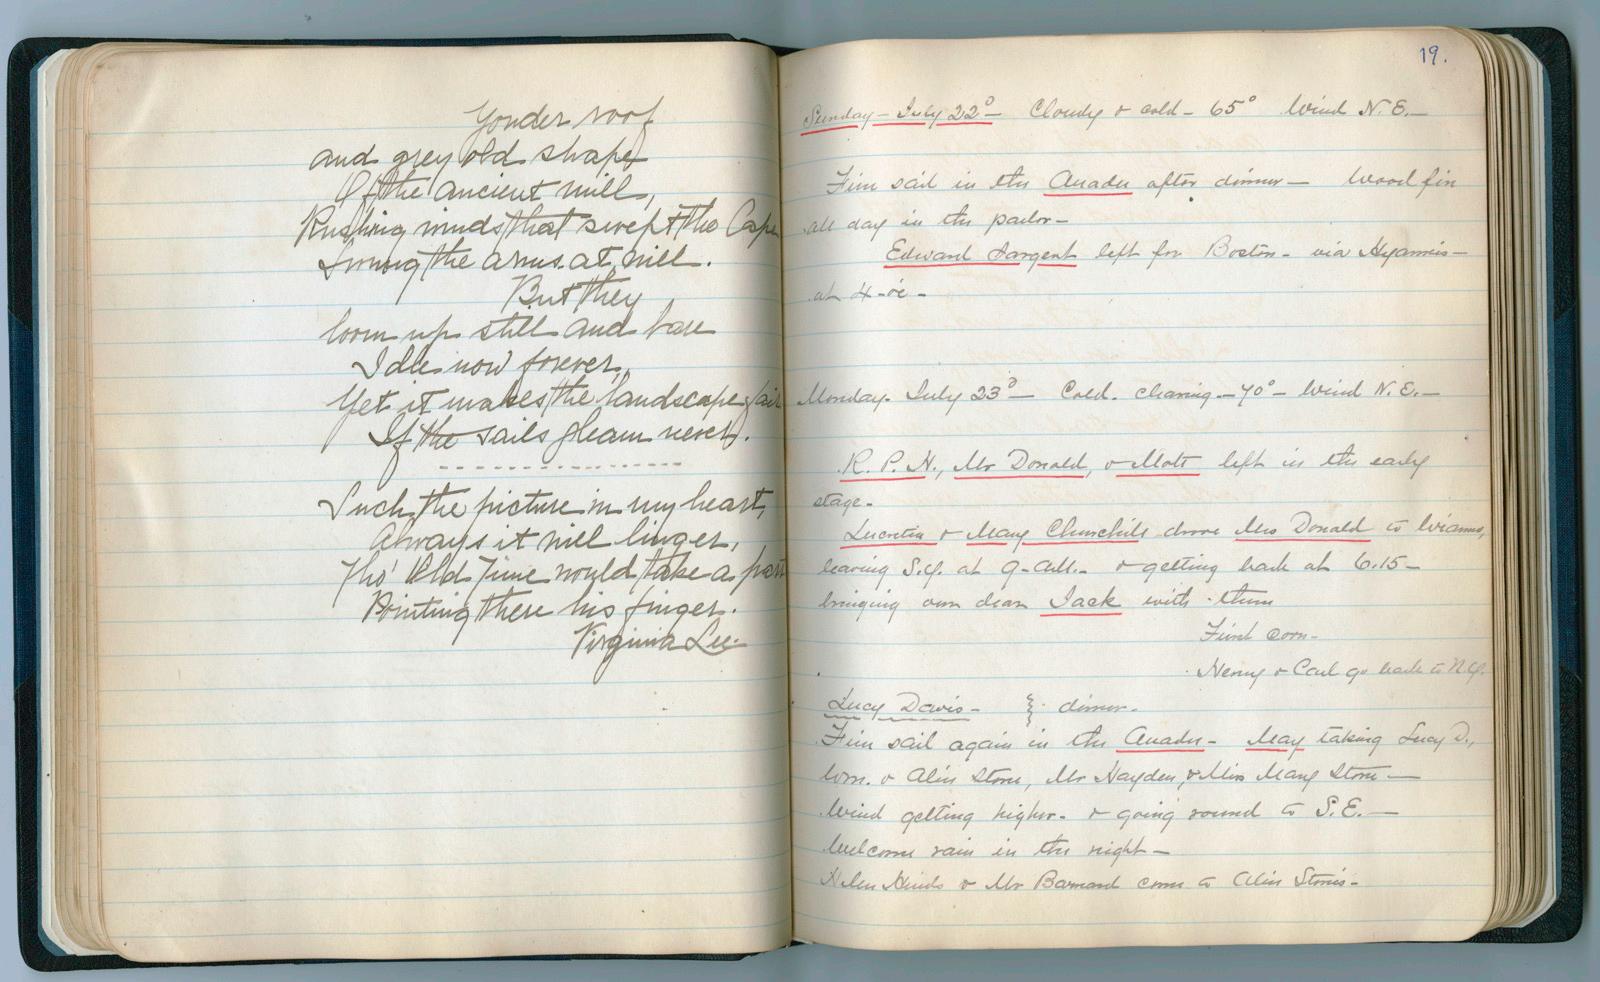 Yonder roof
and grey old shape
Of the ancient mill,
Rushing winds that swept the Cape
Swung the arms at will.
But they
loom up still and bare
Idle now forever,
Yet it makes the landscape fair
If the sails gleam never.
Such the picture in my heart,
Always it will linger,
Tho' Old Time would take a part
Pointing there his finger.
Virginia Lee.
19.
Sunday - July 22° - Cloudy & cold - 65° Wind N.E. -
Fine sail in the after dinner - Wood fire
all day in the parlor -
Edward Sargent left for Boston - via Hyannis -
at 4 -
Monday - July 23° - Cold. clearing - 70° - Wind N.E. -
R. P. H., Mr Donald, & Mott left in the early
stage -
Lucretia & Mary Churchill drove Mrs Donald to Wianno,
leaving S.Y. at 9 - & getting back at 6.15 -
bringing our dear Jack with them
First corn -
Henry & Carl go back to N.Y.
Lucy Davis - } dinner -
Fine sail again in the - May taking Lucy D.,
Wm. & Alice Stone, Mr Hayden, & Miss Mary Stone -
Wind getting higher - & going round to S.E. -
Welcome rain in the night -
Helen Hinds & Mr Barnard come to Alice Stone's -